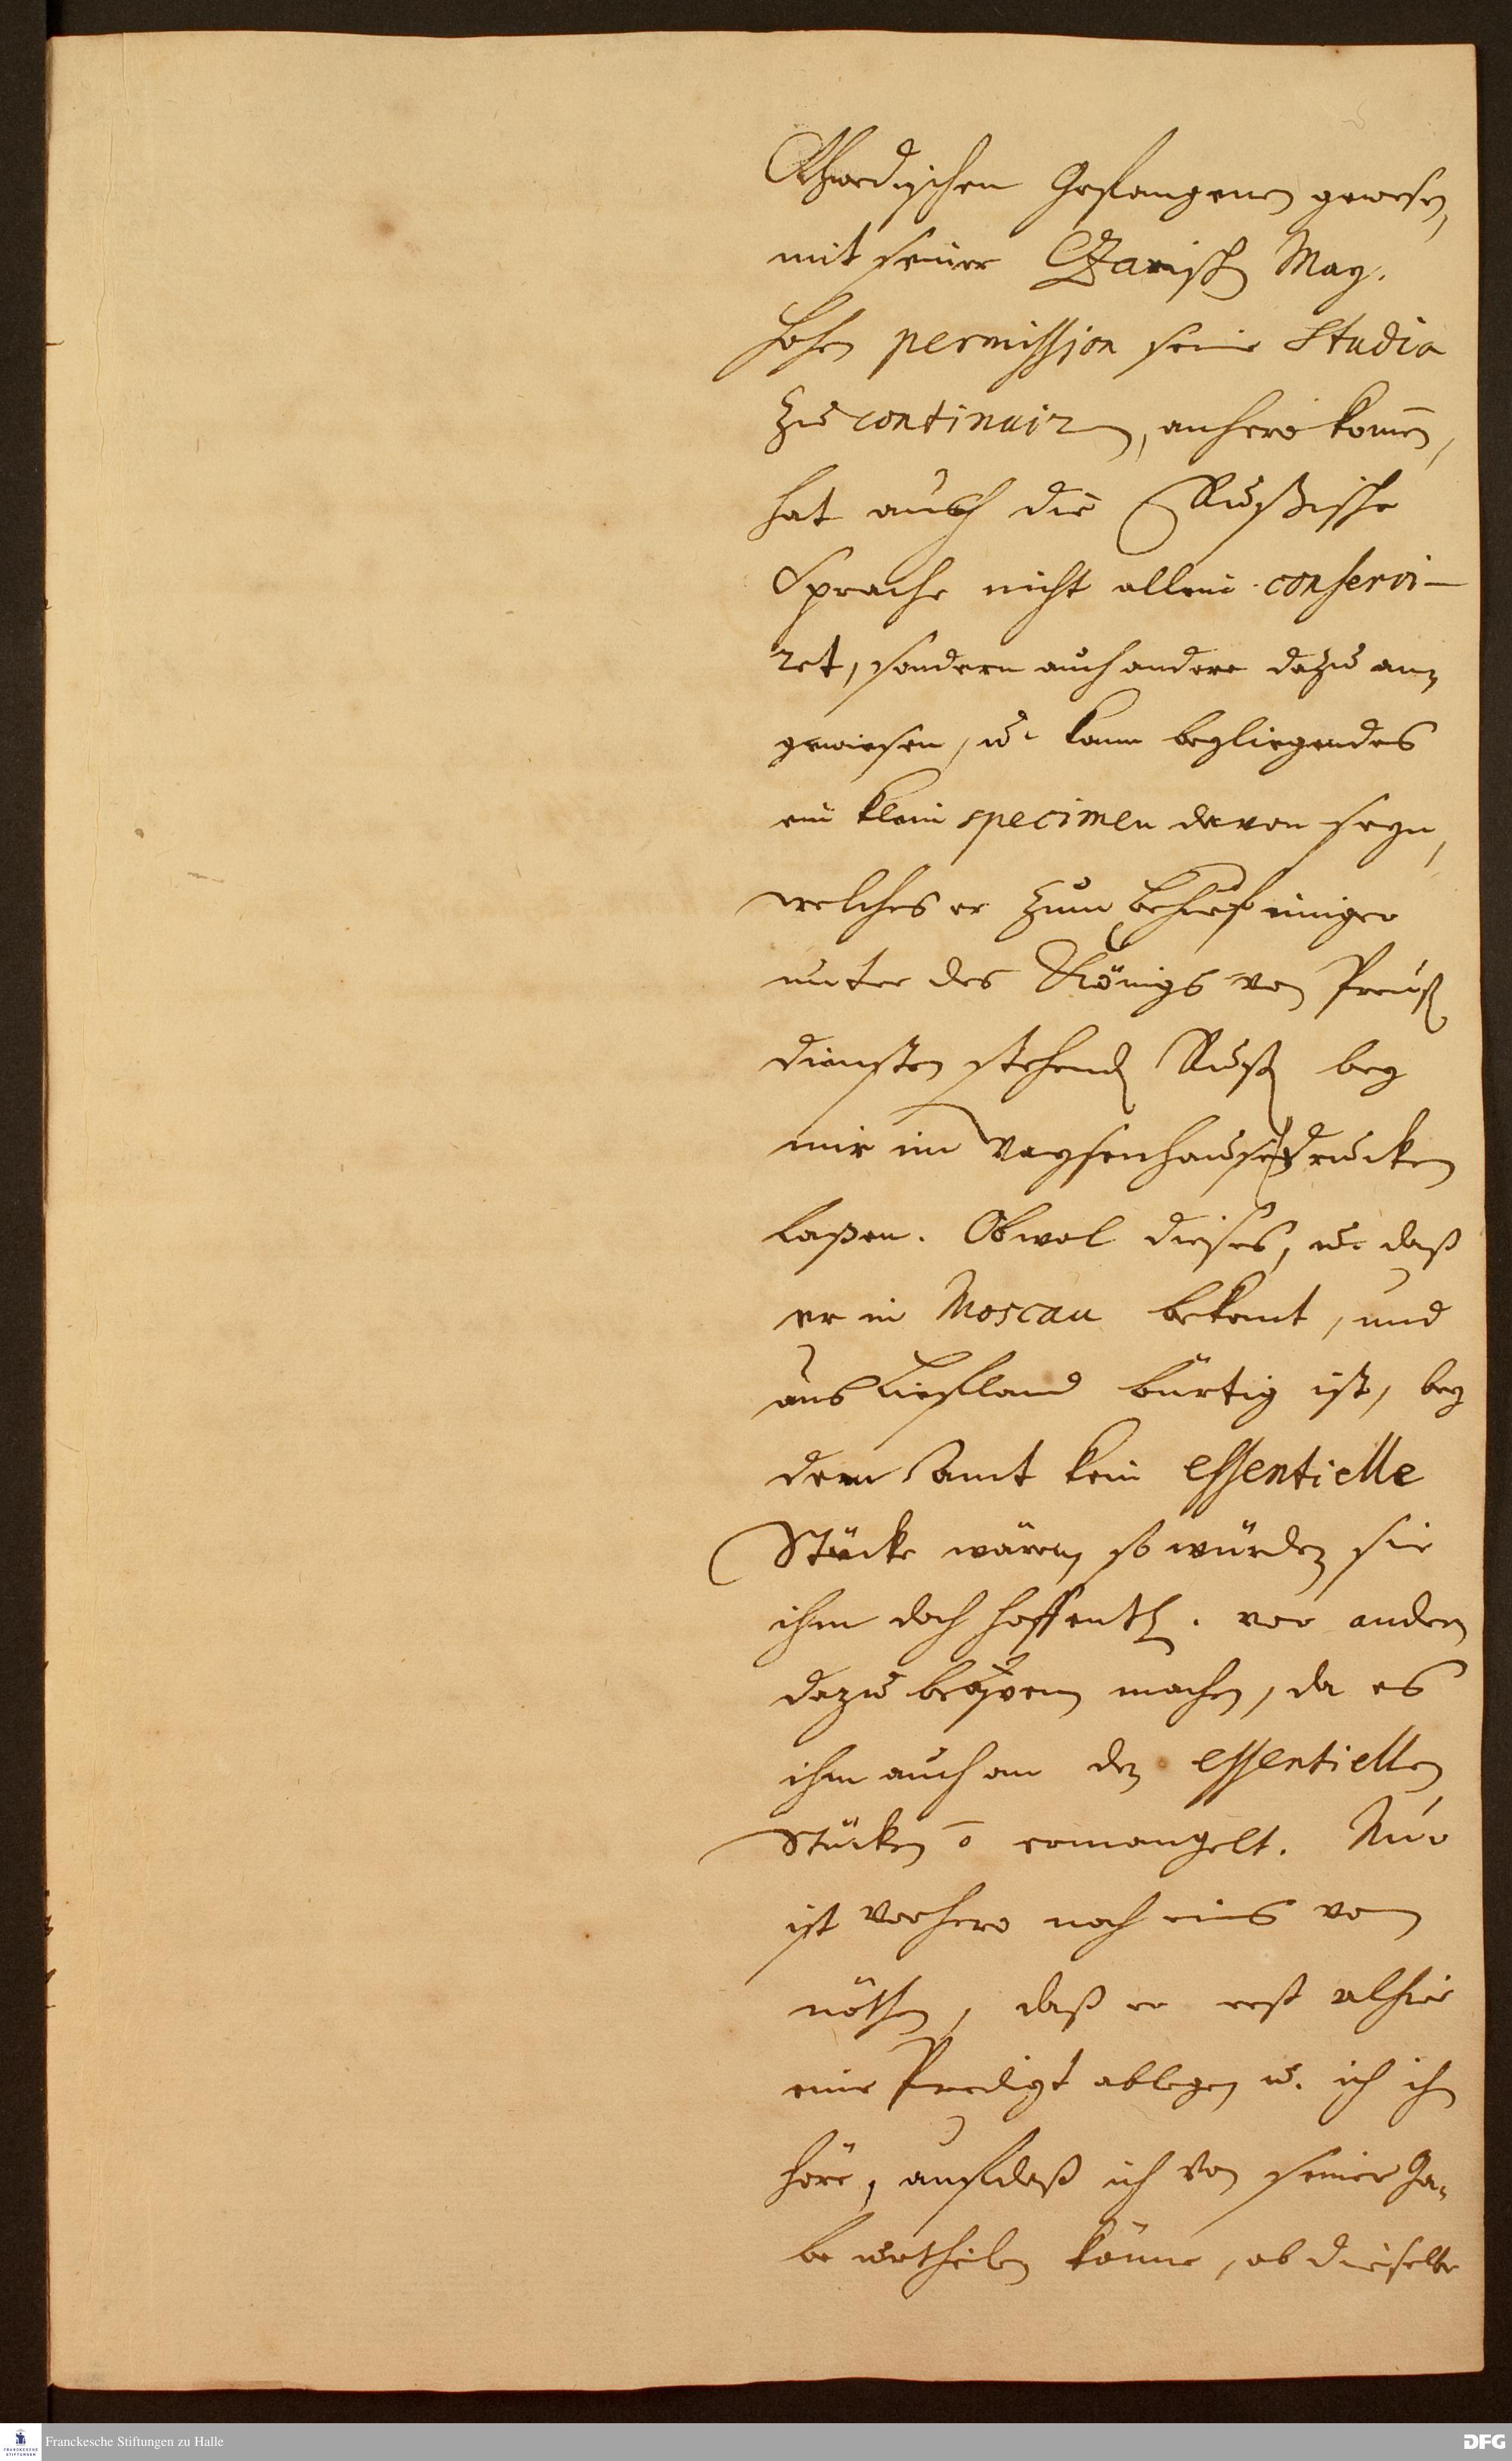 Schwedischen Gefangenen gewesen,
mit seiner Czarisch May.
hohen permission seine Studia
zu continuiren, anhero komen,
hat auch die Rußische
Sprache nicht allein conservi-
ret, sondern auch andere dazu an-
gewiesen, u. kann beyliegendes
ein klein specimen davon seyn,
welches er zum behuf einiger
unter des Königs von Preuß
diensten stehend Ruß bey
mir im Waysenhause drucken
laßen. Obwol dieses, u. daß
er in Moscau bekant, und
aus Liefland bürtig ist, bey
dem Amt kein essentielle
Stücke wären, so würden sie
ihm doch hoffentl. vor andern
dazu beqvem machen, da es
ihm auch an den essentiellen
Stücken ō ermangelt. Nur
ist vorhero noch eins von
nöthen, daß er erst alhier
eine Predigt ablegen u. ich ihn
höre, auf daß ich von seiner Ga-
be urtheilen könne, ob dieselbe
Franckesche Stiftungen zu Halle
DFG